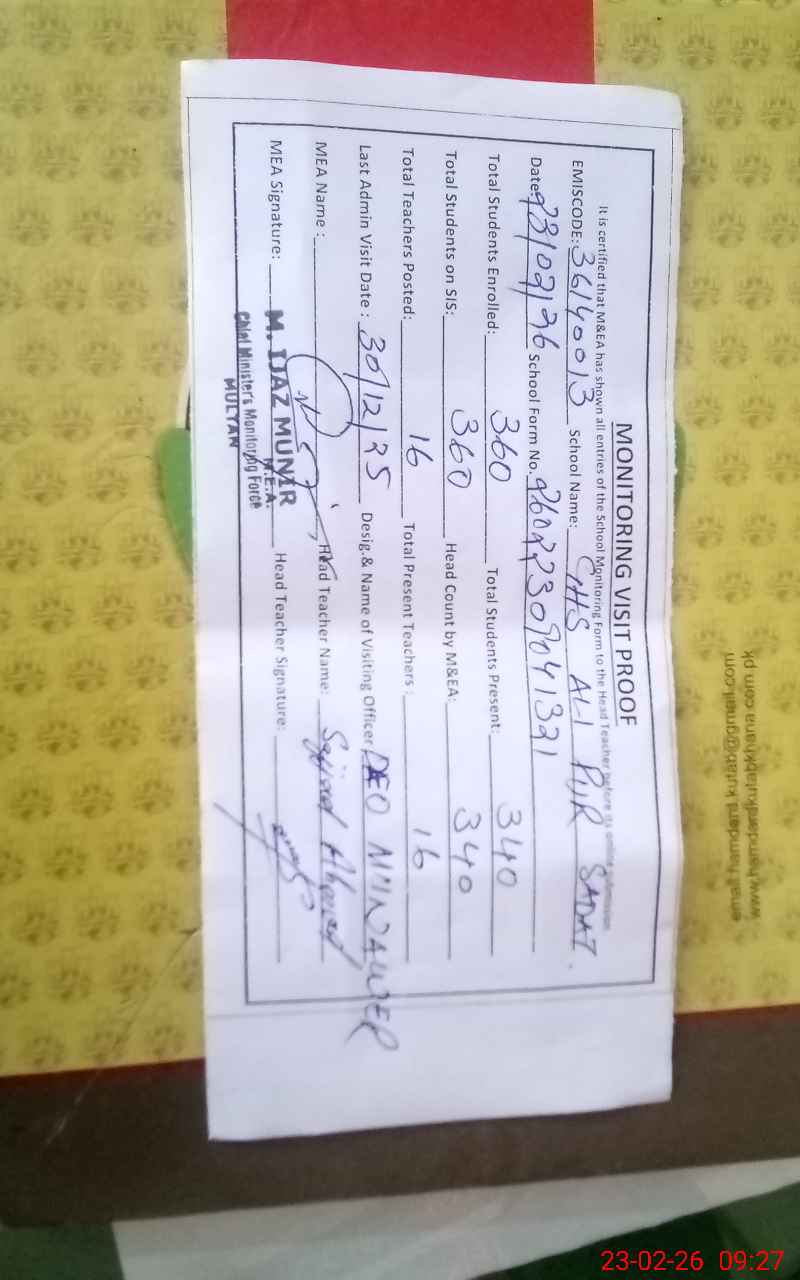 MONITORING VISIT PROOF
It is certified that M&EA has shown all entries of the School Monitoring Form to the Head Teacher before its online submission
EMISCODE: 36140013 School Name: GHS ALI PUR SADAT.
Date: 23/02/26 School Form No. 26022309041321
Total Students Enrolled: 360 Total Students Present: 340
Total Students on SIS: 360 Head Count by M&EA: 340
Total Teachers Posted: 16 Total Present Teachers : 16
Last Admin Visit Date : 30/12/25 Desig.& Name of Visiting Officer DEO
MEA Name : Head Teacher Name: Sajjad Ahmad
MEA Signature: Head Teacher Signature:
M. IJAZ MUNIR
M.E.A.
Chief Minister's Monitoring Force
MULTAN
www.hamdardkutabkhana.com.pk
email:hamdard.kutab@gmail.com
23-02-26 09:27